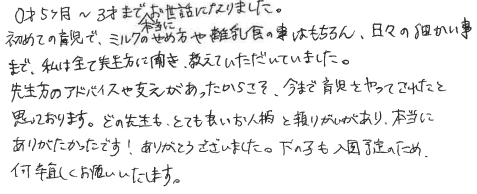 0才5ヶ月〜3才までお世話になりました。
初めての育児で、本当にミルクのやめ方や離乳食の事はもちろん、日々の細かい事
まで、私は全て先生方に聞き、教えていただいていました。
先生方のアドバイスや支えがあったからこそ、今まで育児をやってこれたと
思っております。どの先生も、とても良いお人柄と頼りがいがあり、本当に
ありがたかったです！ありがとうございました。下の子も入園予定のため、
何卒宜しくお願いいたします。